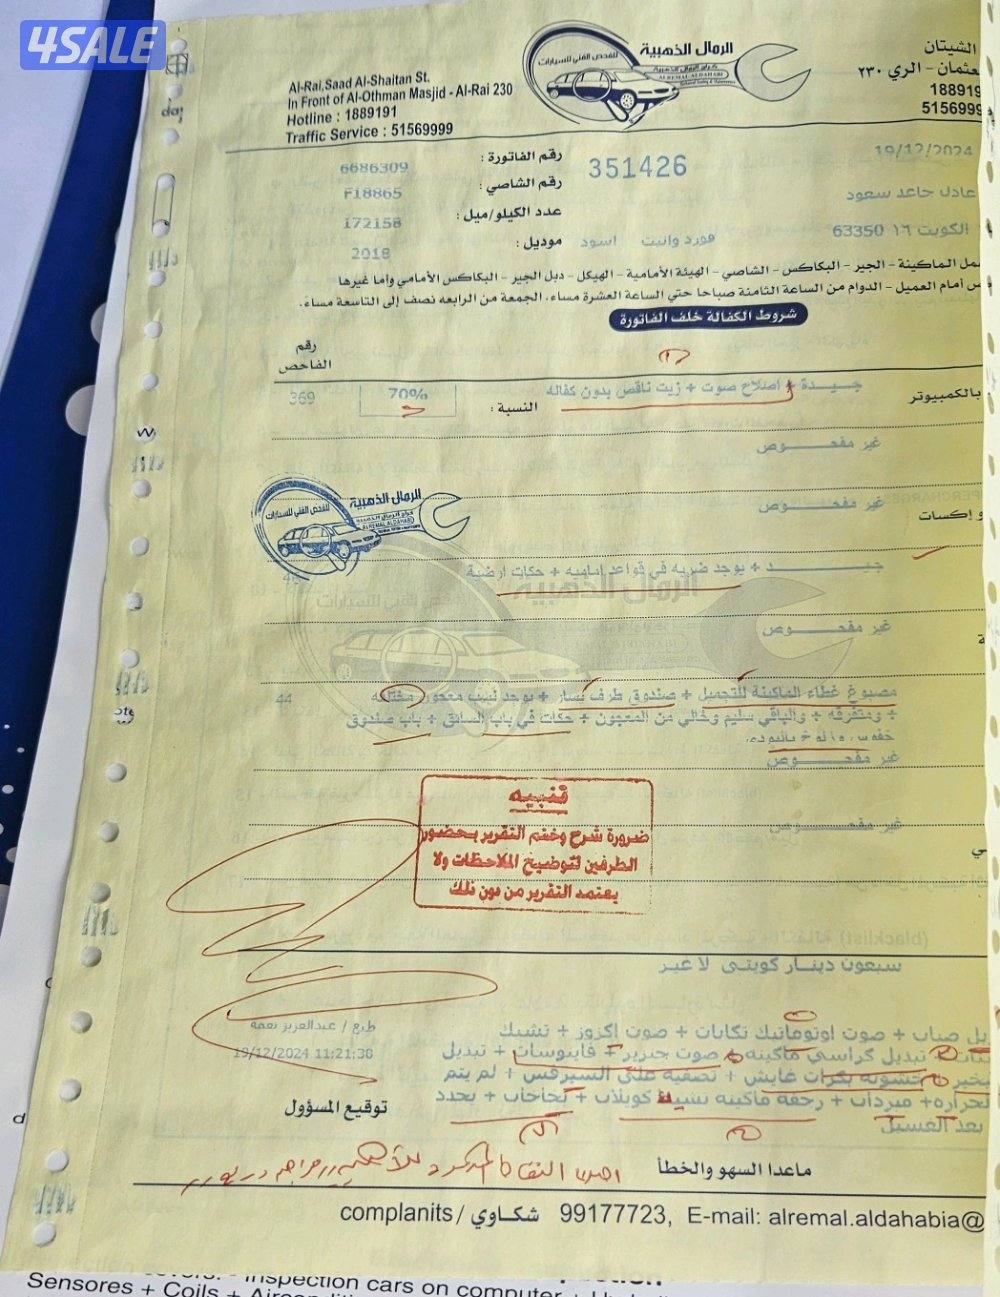 4SALE
الرمال الذهبية
للفحص الفني للسيارات
كراج الرمال الذهبية
ALREMAL ALDAHABI
Al-Rai,Saad Al-Shaitan St.
In Front of Al-Othman Masjid - Al-Rai 230
Hotline : 1889191
Traffic Service : 51569999
الشيتان
عثمان - الري ٢٣٠
188919
5156999
19/12/2024
351426
رقم الفاتورة :
6686309
عادل جاعد سعود
رقم الشاصي :
F18865
الكويت ١٦ 63350
عدد الكيلو/ميل :
172158
فورد وانيت اسود
موديل :
2018
مل الماكينة - الجير - البكاكس - الشاصي - الهيئة الأمامية - الهيكل - دبل الجير - البكاكس الأمامي وأما غيرها
أمام العميل - الدوام من الساعة الثامنة صباحا حتي الساعة العشرة مساء، الجمعة من الرابعه نصف إلى التاسعة مساء.
شروط الكفالة خلف الفاتورة
رقم
الفاحص
بالكمبيوتر
جيـــدة + اصلاح صوت + زيت ناقص بدون كفاله
النسبة :
70%
369
غير مفحـــوص
غير مفحـــوص
و إكسات
الرمال الذهبية
للفحص الفني للسيارات
كراج الرمال الذهبية
ALREMAL ALDAHABI
جيـــــد + يوجد ضربه في قواعد اماميه + حكات ارضية
الرمال الذهبية
للفحص الفني للسيارات
غير مفحـــوص
مصبوغ غطاء الماكينة للتجميل + صندوق طرف يسار + يوجد نسب معجون مختلفه
44
+ ومتفرقه + والباقي سليم وخالي من المعجون + حكات في باب السائق + باب صندوق
غير مفحـــوص
غير مفحـــوص
تنبيه
ضرورة شرح وختم التقرير بحضور
الطرفين لتوضيح الملاحظات ولا
يعتمد التقرير من دون ذلك
(blacklist)
سبعون دينـار كويتى لا غير
طبع / عبدالعزيز نعمة
يل صباب + صوت اوتوماتيك تكايات + صوت اكزوز + تشيك
19/12/2024 11:21:38
تبديل كراسي ماكينه + صوت جنزير + فاينوسات + تبديل
بخير + خشونه بكرات قايش + تصفية على السيرفس + لم يتم
لحراره+ مبردات + رجفه ماكينه تشيك كويلات + نجاخات + يحدد
بعد الغسيل
توقيع المسؤول
ماعدا السهو والخطأ
complanits / شكاوي 99177723, E-mail: alremal.aldahabia@
inspection cars on computer
Sensores + Coils +